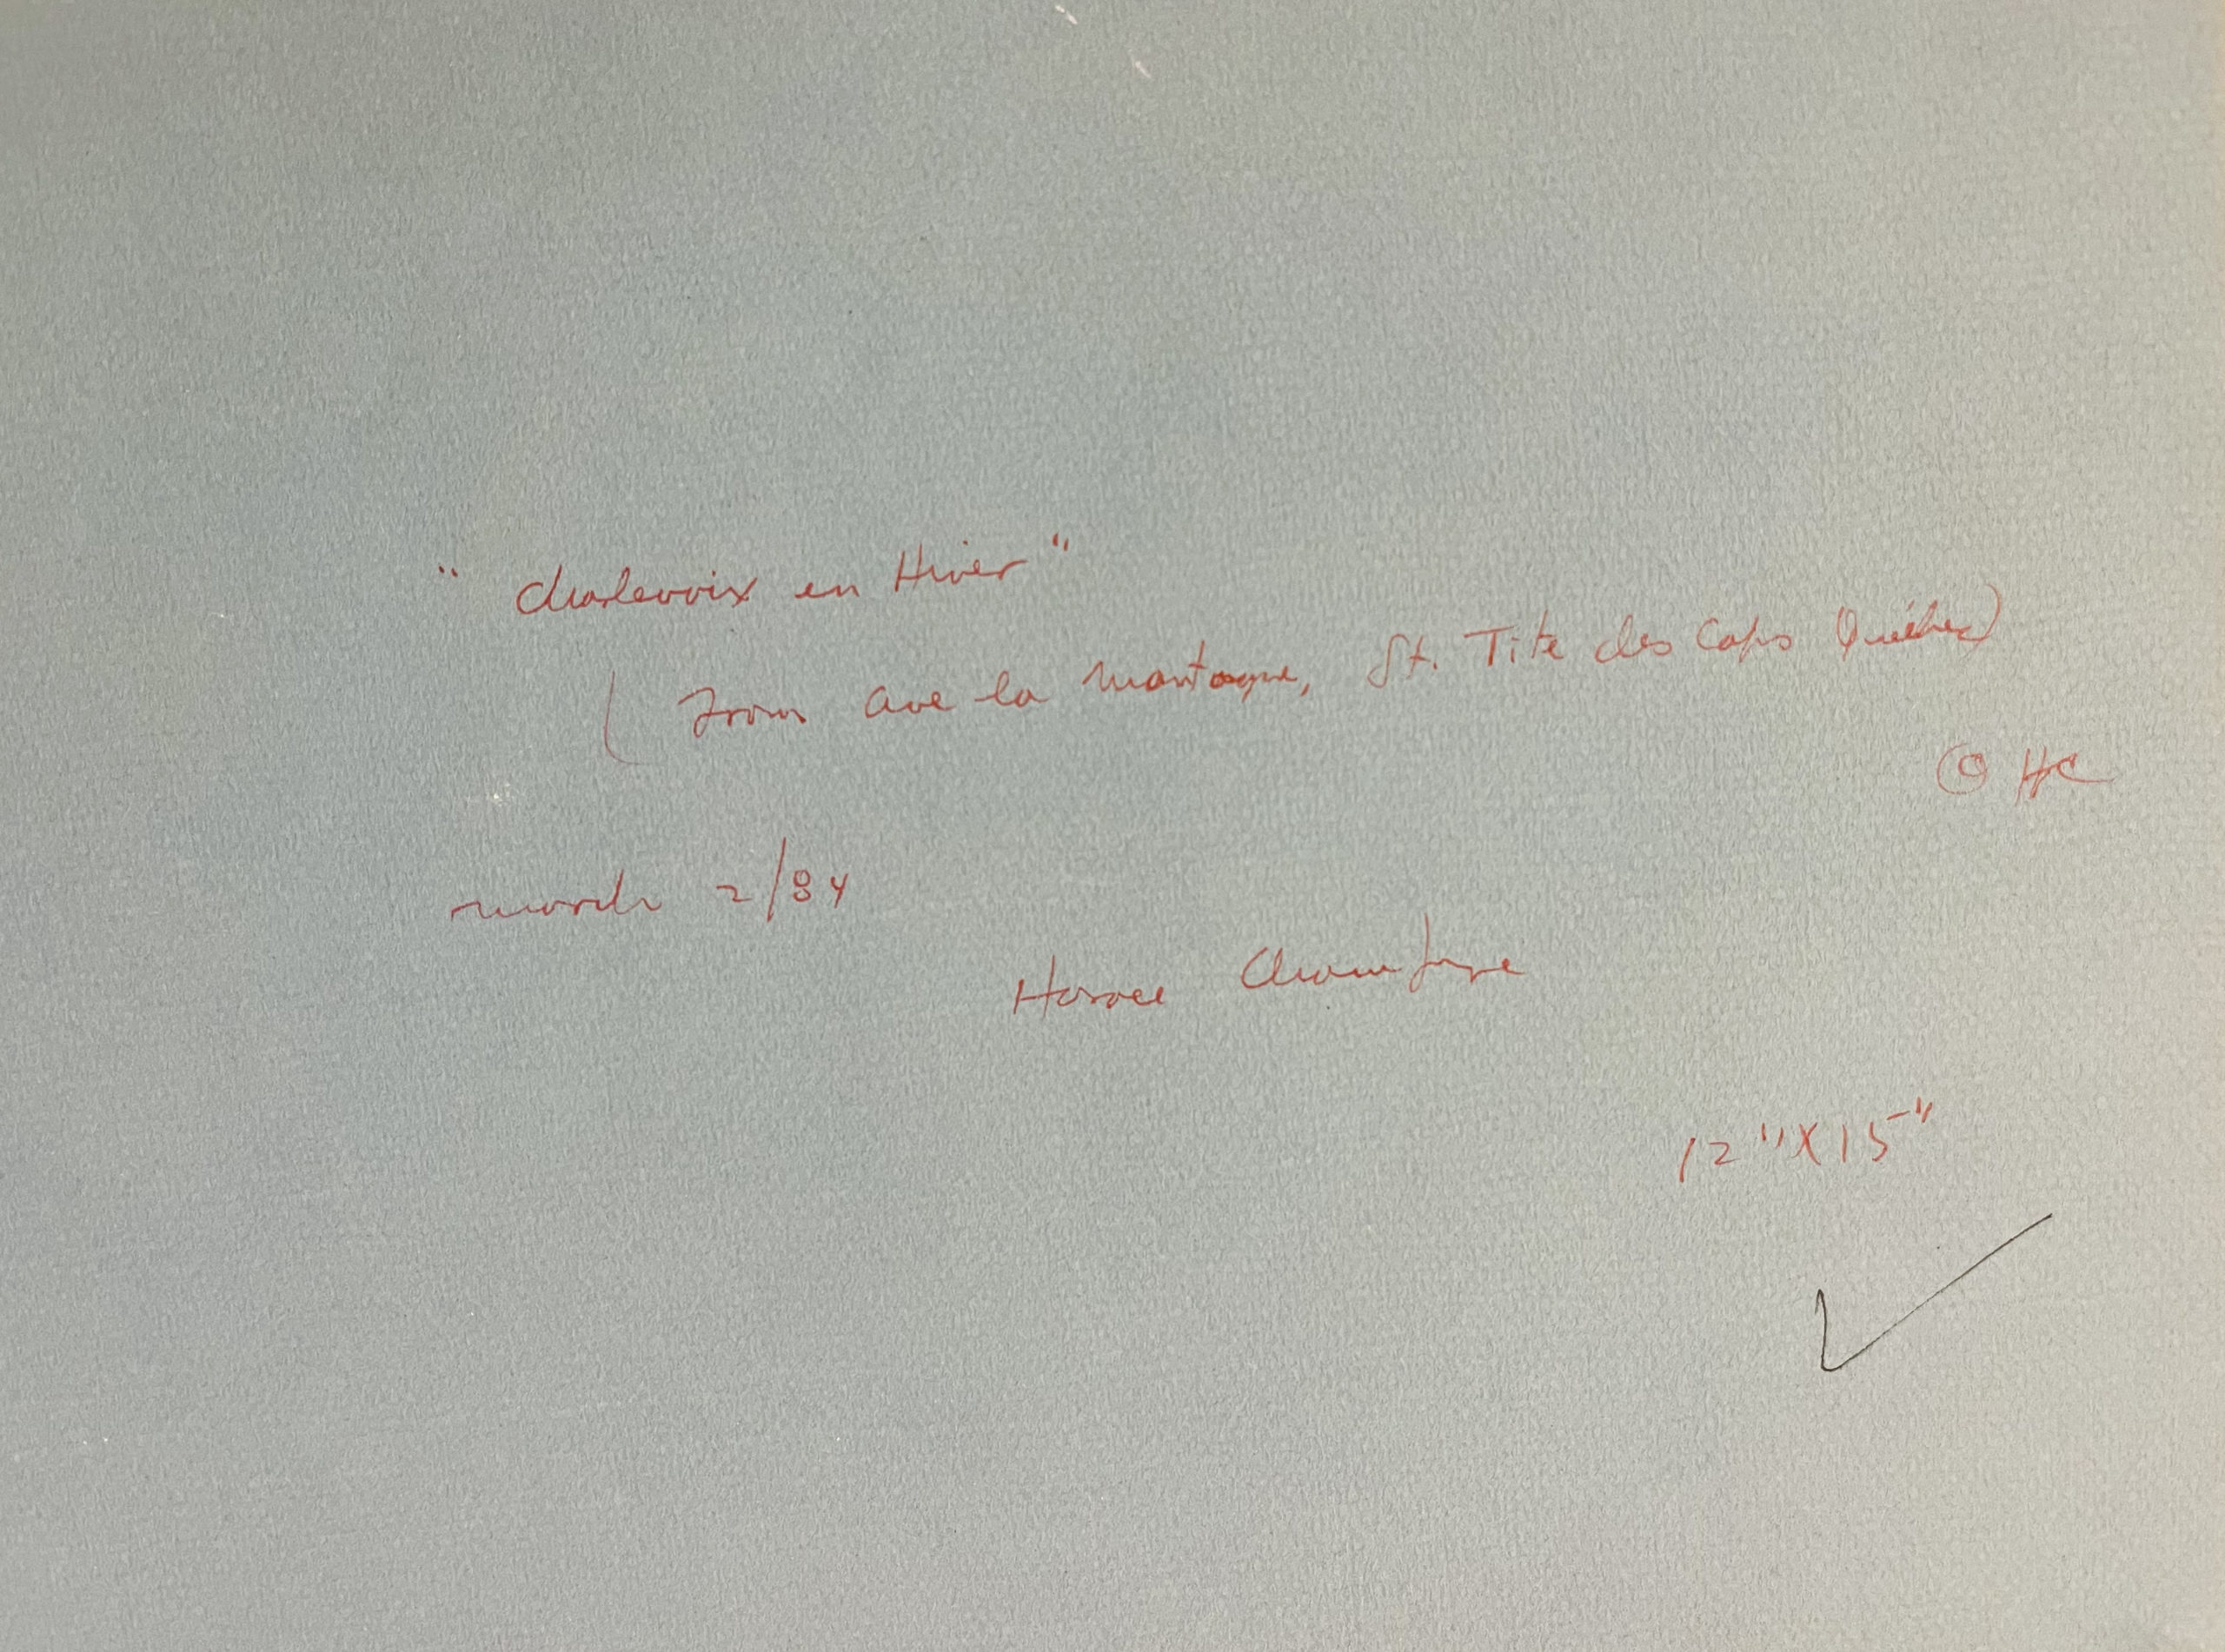 "Charlevoix en Hiver"
(from ave la montagne, St. Tite des Caps Québec)
© HC
march 2/84
Horace Champagne
12"X15"